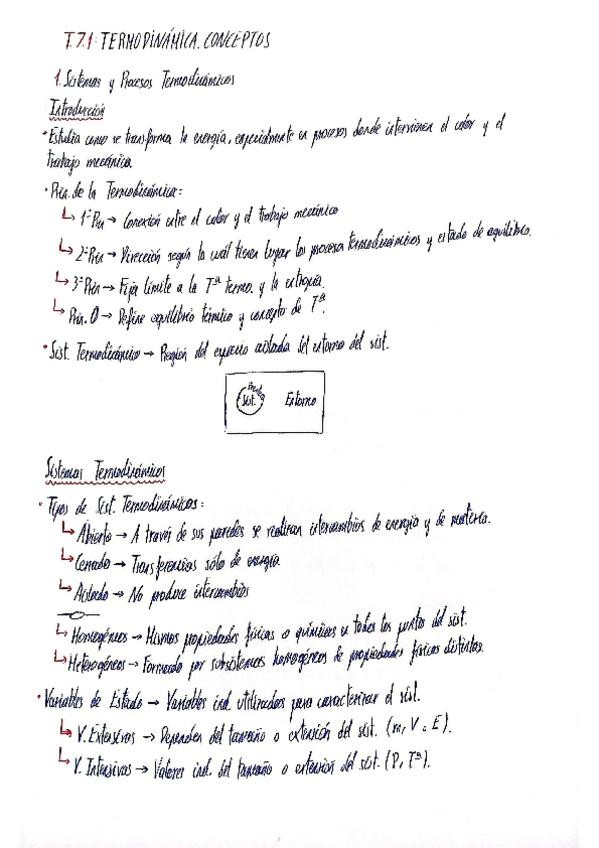 T.7.1: TERMODINÁMICA. CONCEPTOS
1. Sistemas y Procesos Termodinámicos
Introducción
· Estudia como se transforma la energía, especialmente en procesos donde intervienen el calor y el
trabajo mecánico.
· Prin. de la Termodinámica:
↳ 1º Prin → Conexión entre el calor y el trabajo mecánico
↳ 2º Prin → Dirección según la cuál tienen lugar los procesos termodinámicos y estado de equilibrio.
↳ 3º Prin → Fija límite a la Tª termo. y la entropía.
↳ Prin. 0 → Define equilibrio térmico y concepto de Tª.
· Sist. Termodinámico → Región del espacio aislada del entorno del sist.
Sist.
Entorno
Sistemas Termodinámicos
· Tipos de Sist. Termodinámicos:
↳ Abierto → A través de sus paredes se realizan intercambios de energía y de materia.
↳ Cerrado → Transferencias sólo de energía.
↳ Aislado → No produce intercambios
↳ Homogéneos → Mismas propiedades físicas o químicas en todos los puntos del sist.
↳ Heterogéneos → Formado por subsistemas homogéneos de propiedades físicas distintas.
· Variables de Estado → Variables ind. utilizadas para caracterizar el sist.
↳ V. Extensivas → Dependen del tamaño o extensión del sist. (m, V o E).
↳ V. Intensivas → Valores ind. del tamaño o extensión del sist. (P, Tª).